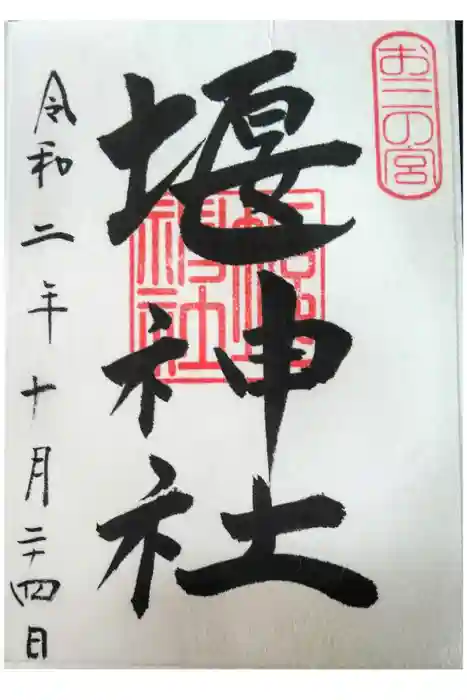 お三の宮
堰神社
令和二年十月二十四日